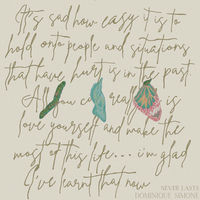 It's sad how easy it is to
hold onto people and situations
that have hurt is in the past.
All you can really do is
love yourself and make the
most of this life... i'm glad
I've learnt that now
NEVER LASTS
DOMINIQUE SIMONE